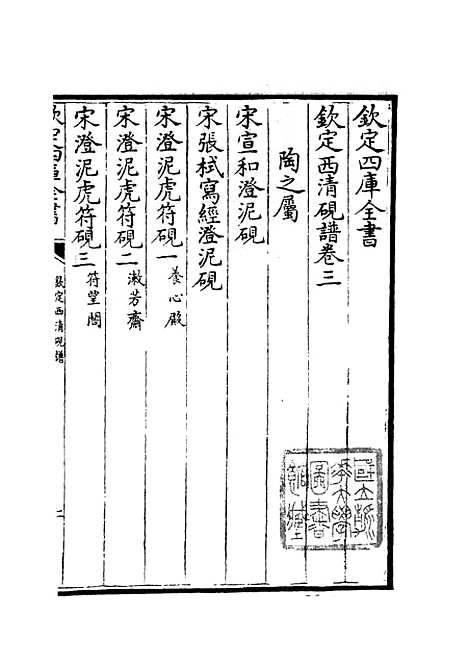 欽定四庫全書
欽定西清硯譜卷三
陶之屬
宋宣和澄泥硯
宋張栻寫經澄泥硯
宋澄泥虎符硯一 養心殿
宋澄泥虎符硯二 漱芳齋
宋澄泥虎符硯三 符望閣
欽定四庫全書
欽定西清硯譜